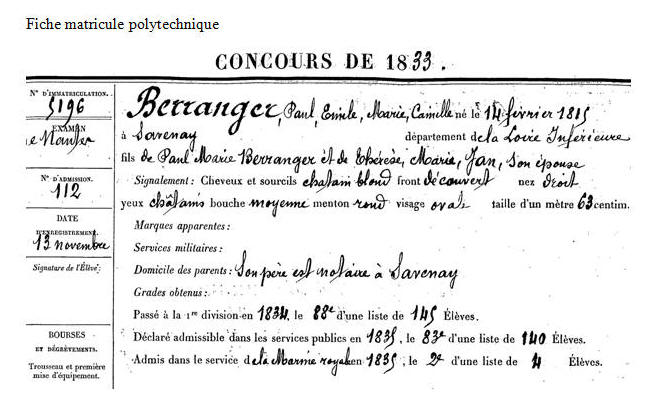 Fiche matricule polytechnique
CONCOURS DE 1833.
N° D'IMMATRICULATION.
5196
EXAMEN
N° D'ADMISSION.
112
DATE
D'ENREGISTREMENT.
13 novembre
Signature de l'Élève:
BOURSES
ET DÉGRÈVEMENTS.
Trousseau et première
mise d'équipement.
Berranger, Paul, Emile, Marie, Camille né le 14 février 1815
à Savenay département de la Loire Inférieure
fils de Paul Marie Berranger et de Thérèse, Marie, Jan, son épouse
Signalement: Cheveux et sourcils chatain blond front découvert nez droit
yeux châtains bouche moyenne menton rond visage ovale taille d'un mètre 63 centim.
Marques apparentes:
Services militaires:
Domicile des parents: Son père est notaire à Savenay
Grades obtenus:
Passé à la 1re division en 1834, le 88e d'une liste de 145 Élèves.
Déclaré admissible dans les services publics en 1835, le 83e d'une liste de 140 Élèves.
Admis dans le service de la Marine royale en 1835, le 2e d'une liste de 4 Élèves.